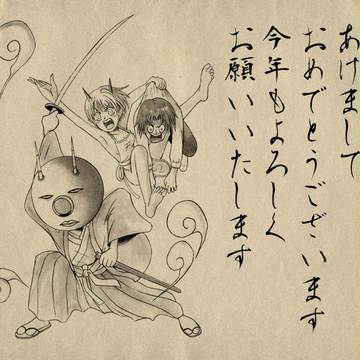 あけまして
おめでとうございます
今年もよろしく
お願いいたします